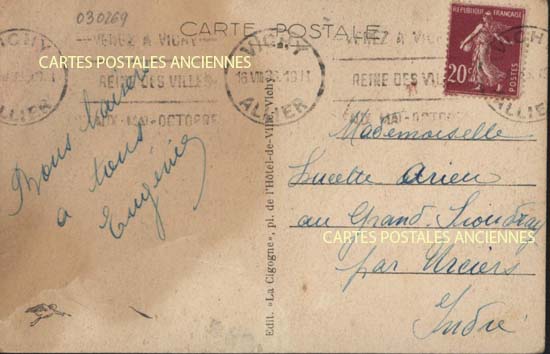 030269
CARTE POSTALE
VICHY
ALLIER
VENEZ A VICHY
REINE DES VILLES
AUX MAI-OCTOBRE
VICHY
ALLIER
VENEZ A VICHY
REINE DES VIL
MAI-OCTOBRE
VICHY
ALLIER
REPUBLIQUE FRANÇAISE
20c
POSTES
CARTES POSTALES ANCIENNES
Bons baisers
a tous
Eugénie
Edit. «La Cigogne», pl. de l'Hôtel-de-Ville, Vichy
Mademoiselle
Lucette
au Grand
CARTES POSTALES ANCIENNES
par Urciers
Indre